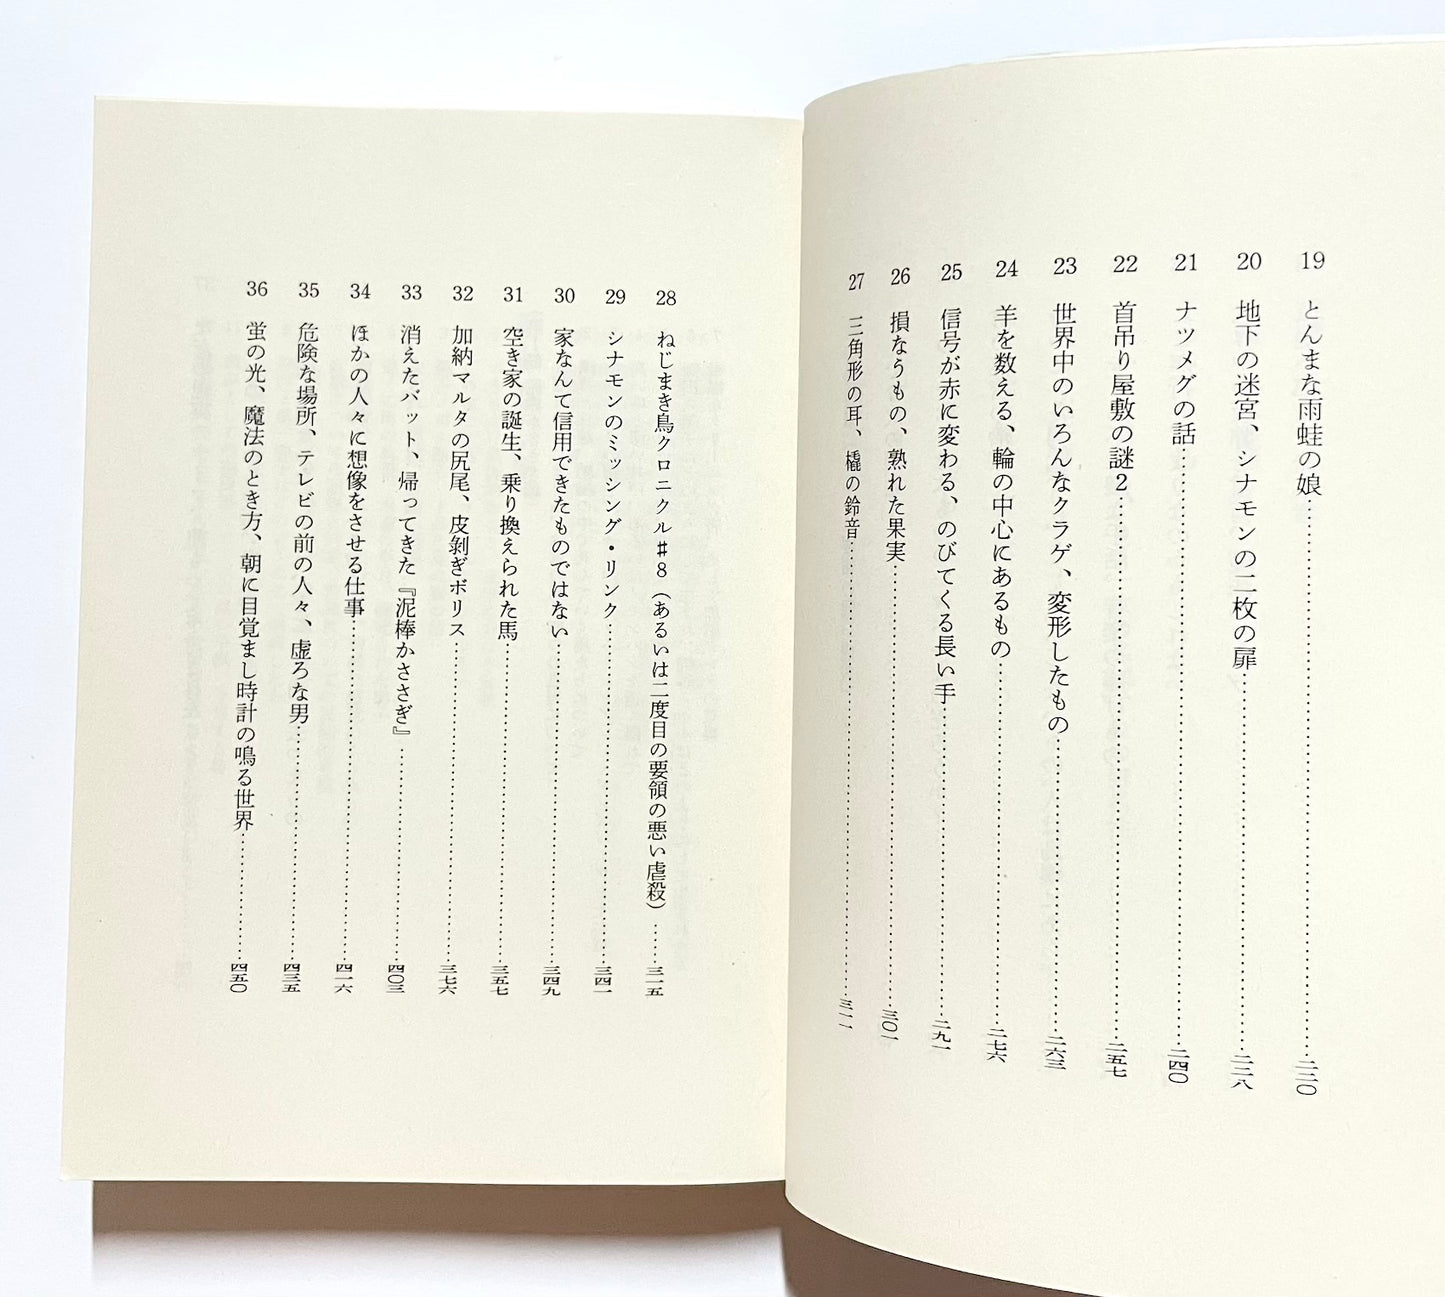 19 とんまな雨蛙の娘……二二〇
20 地下の迷宮、シナモンの二枚の扉……二二八
21 ナツメグの話……二四〇
22 首吊り屋敷の謎2……二五七
23 世界中のいろんなクラゲ、変形したもの……二六三
24 羊を数える、輪の中心にあるもの……二七六
25 信号が赤に変わる、のびてくる長い手……二九一
26 損なうもの、熟れた果実……三〇一
27 三角形の耳、橇の鈴音……三一一
28 ねじまき鳥クロニクル♯8(あるいは二度目の要領の悪い虐殺)……三一五
29 シナモンのミッシング・リンク……三四一
30 家なんて信用できたものではない……三四九
31 空き家の誕生、乗り換えられた馬……三五七
32 加納マルタの尻尾、皮剝ぎボリス……三七六
33 消えたバット、帰ってきた『泥棒かささぎ』……四〇三
34 ほかの人々に想像をさせる仕事……四一六
35 危険な場所、テレビの前の人々、虚ろな男……四三五
36 蛍の光、魔法のとき方、朝に目覚まし時計の鳴る世界……四五〇